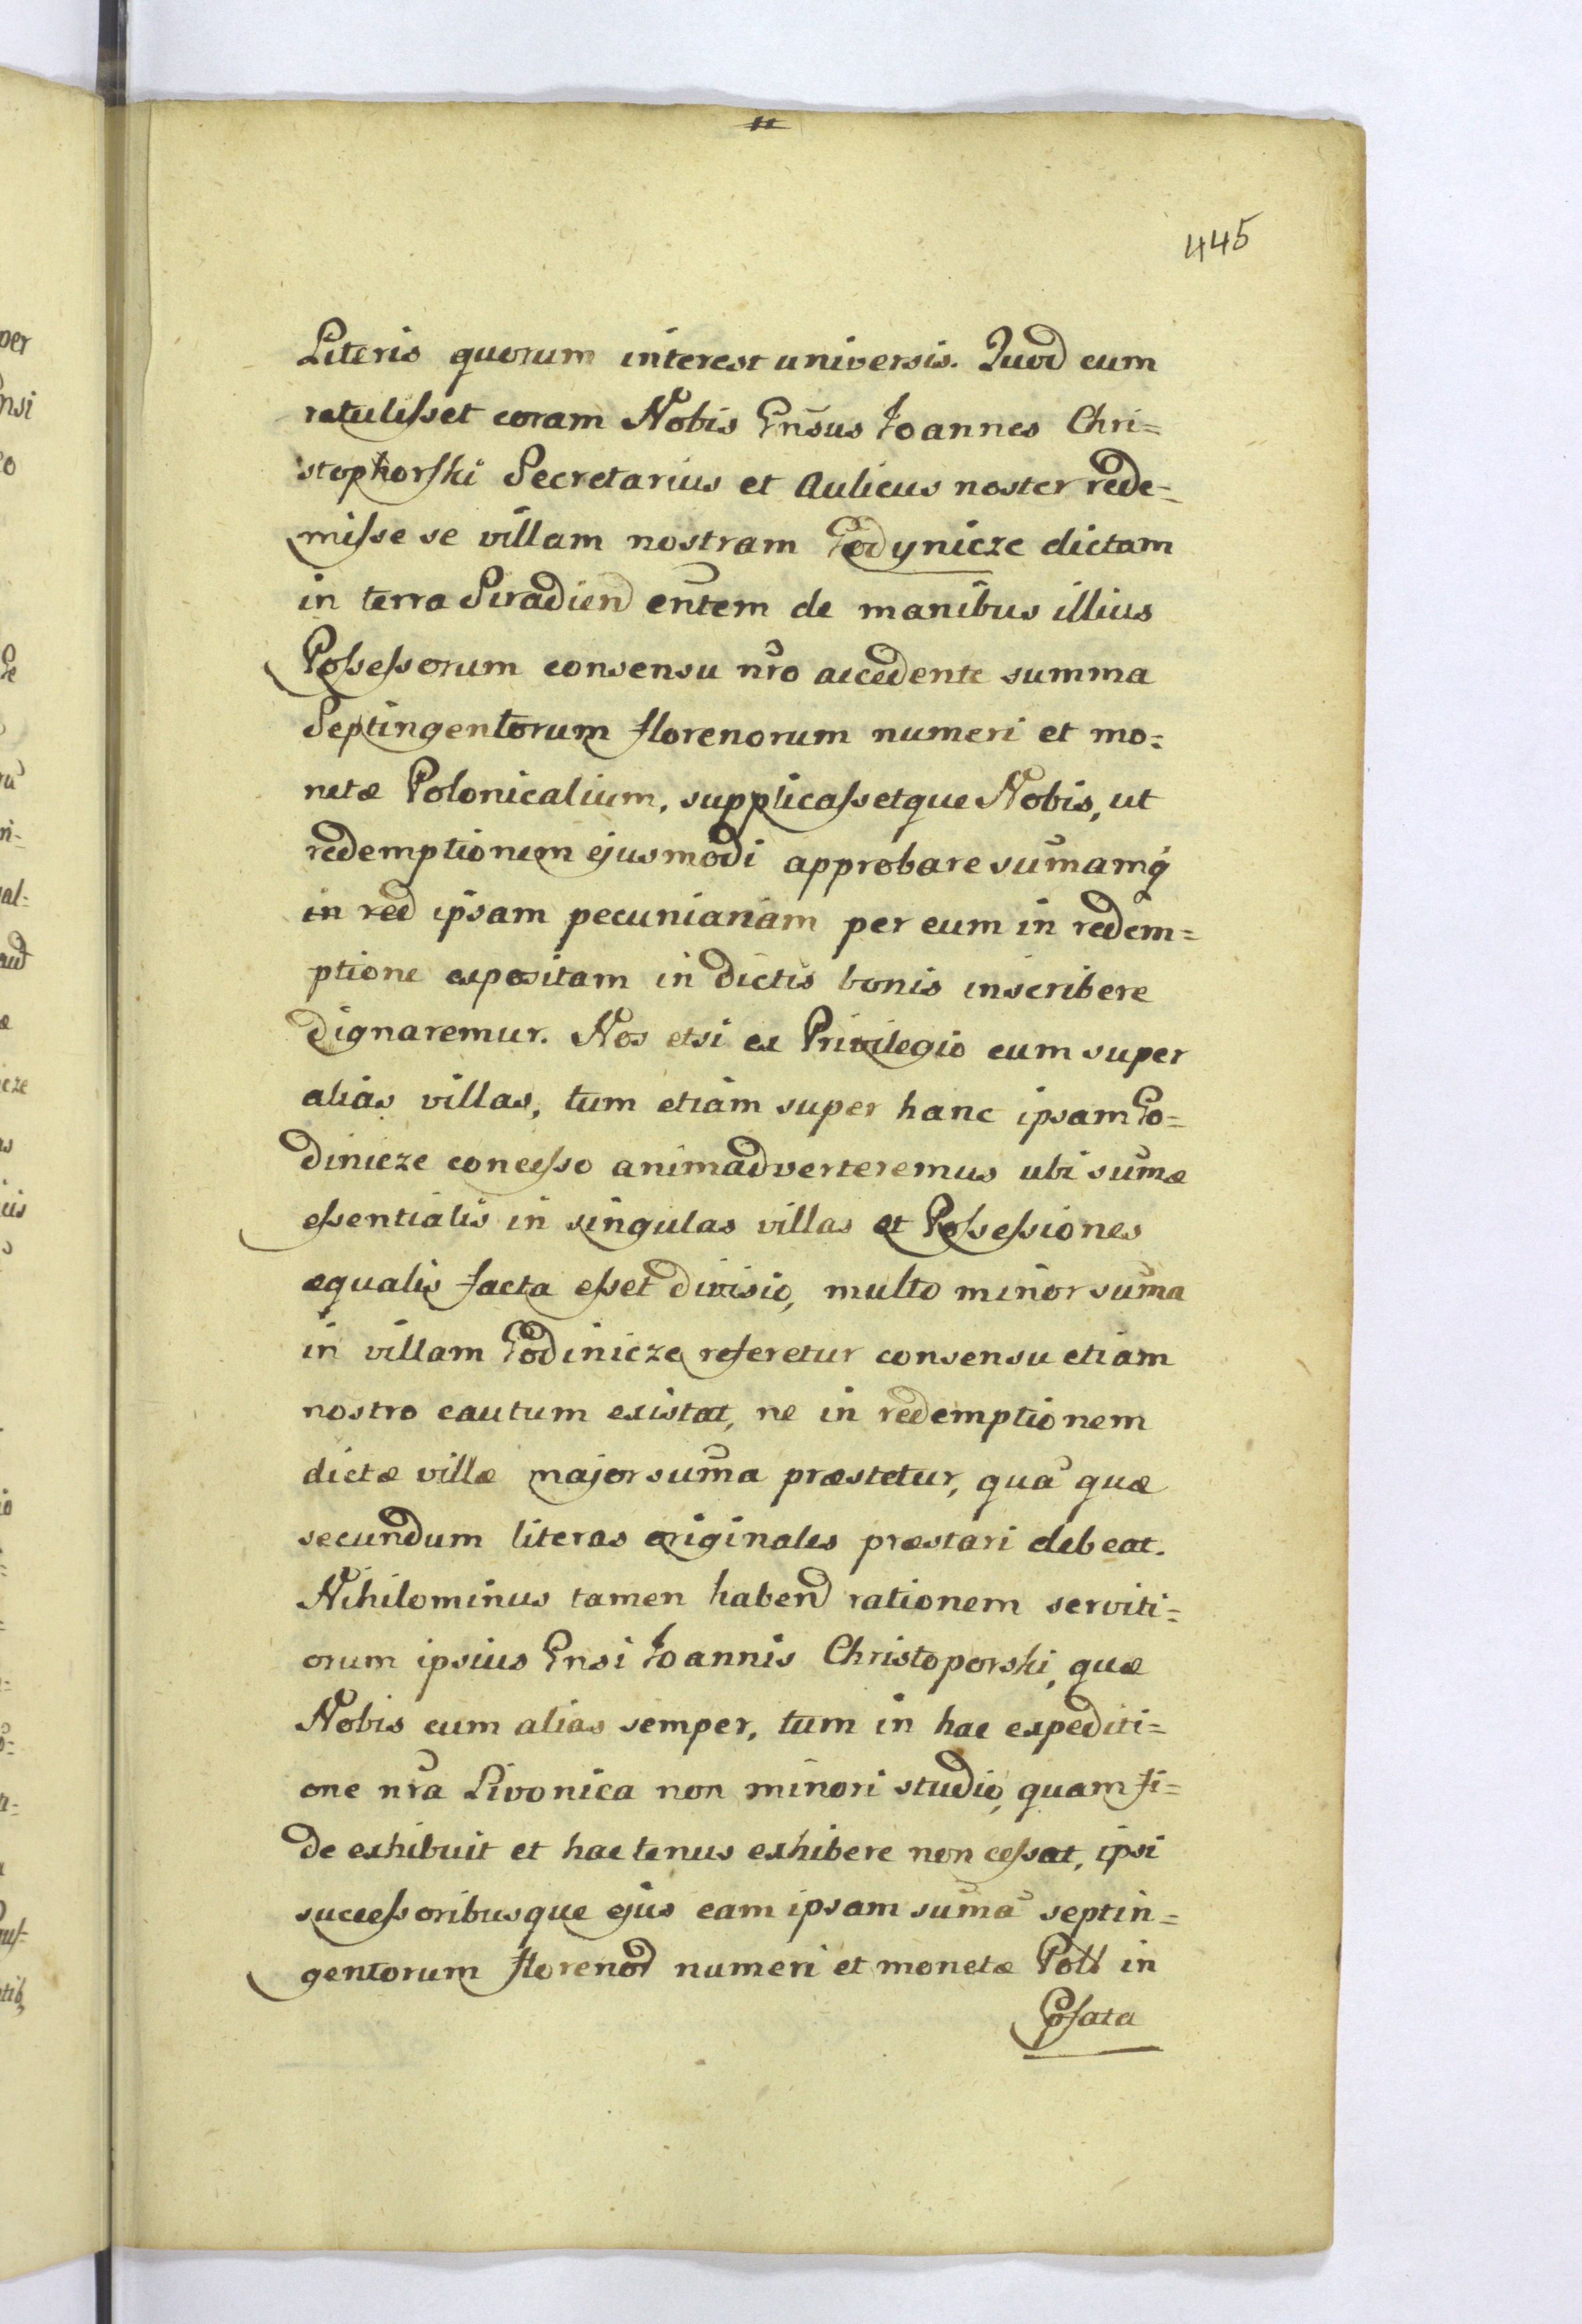 445
Literis quorum interest universis. Quod cum
retulisset coram Nobis Gn̄sus Joannes Chri=
stophorski Secretarius et Aulicus noster rede=
misse se villam nostram Godynicze dictam
in terra Siradien en̄tem de manibus illius
Possessorum consensu nr̄o accedente summa
Septingentorum florenorum numeri et mo=
netæ Polonicalium, supplicassetque Nobis, ut
redemptionem ejusmodi approbare sum̄amq́
in red ipsam pecuniariam per eum in redem=
ptione expositam in dictis bonis inscribere
dignaremur. Nos etsi ex Privilegio cum super
alias villas, tum etiam super hanc ipsam Go=
dinicze concesso animadverteremus ubi sum̄æ
essentialis in singulas villas et Possessiones
æqualis facta esset divisio, multo minor sum̄a
in villam Godinicze referetur consensu etiam
nostro cautum existat, ne in redemptionem
dictæ villæ major sum̄a præstetur, quā quæ
secundum literas originales præstari debeat.
Nihilominus tamen habend rationem serviti=
orum ipsius Gnsi Joannis Christoporski, quæ
Nobis cum alias semper, tum in hac expediti=
one nr̄a Livonica non minori studio, quam fi=
de exhibuit et hactenus exhibere non cessat, ipsi
successoribusque ejus eam ipsam sum̄ā septin=
gentorum floreno numeri et monetæ Poll in